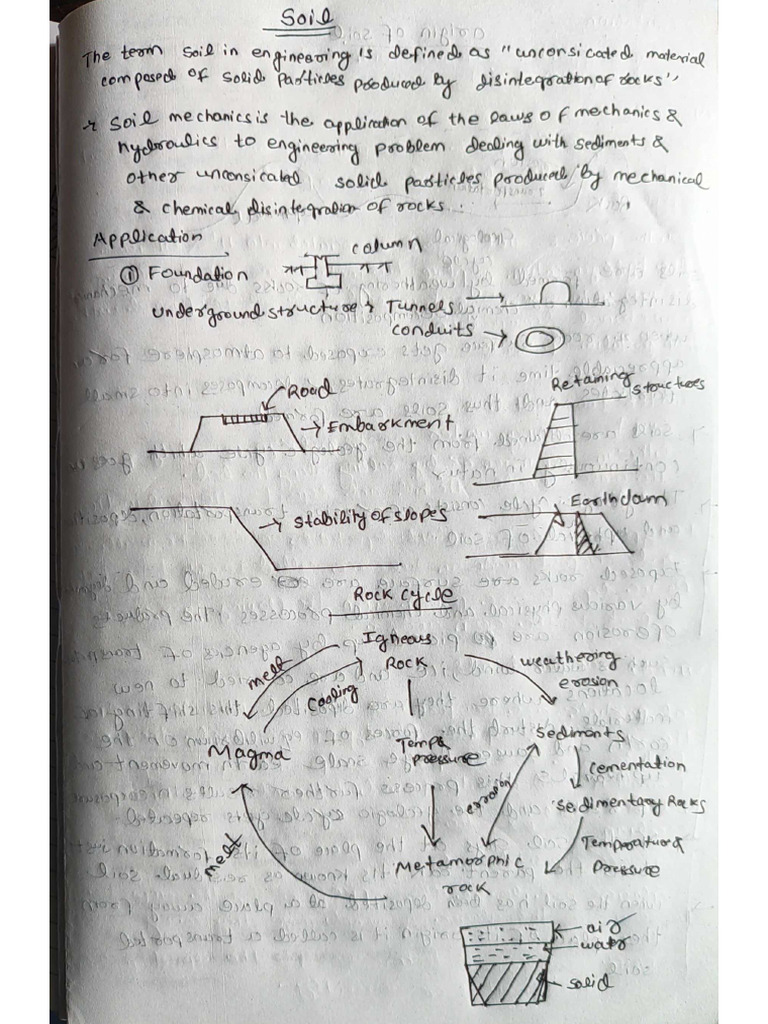 Soil
The term soil in engineering is defined as "unconsicated material
composed of solid particles produced by disintegration of rocks",
Soil mechanics is the application of the laws of mechanics &
hydraulics to engineering problem dealing with sediments &
other unconsicated solid particles produced by mechanical
& chemical disintegration of rocks.
Application
① Foundation
column
underground structure Tunnels
conduits
Road
Embarkment
Retaining
structures
stability of slopes
Earth dam
Rock Cycle
Igneous
Rock
melt
cooling
weathering
erosion
Magma
Temp &
pressure
sediments
cementation
erosion
sedimentary Rocks
Temperature &
pressure
melt
Metamorphic
rock
air
water
solid